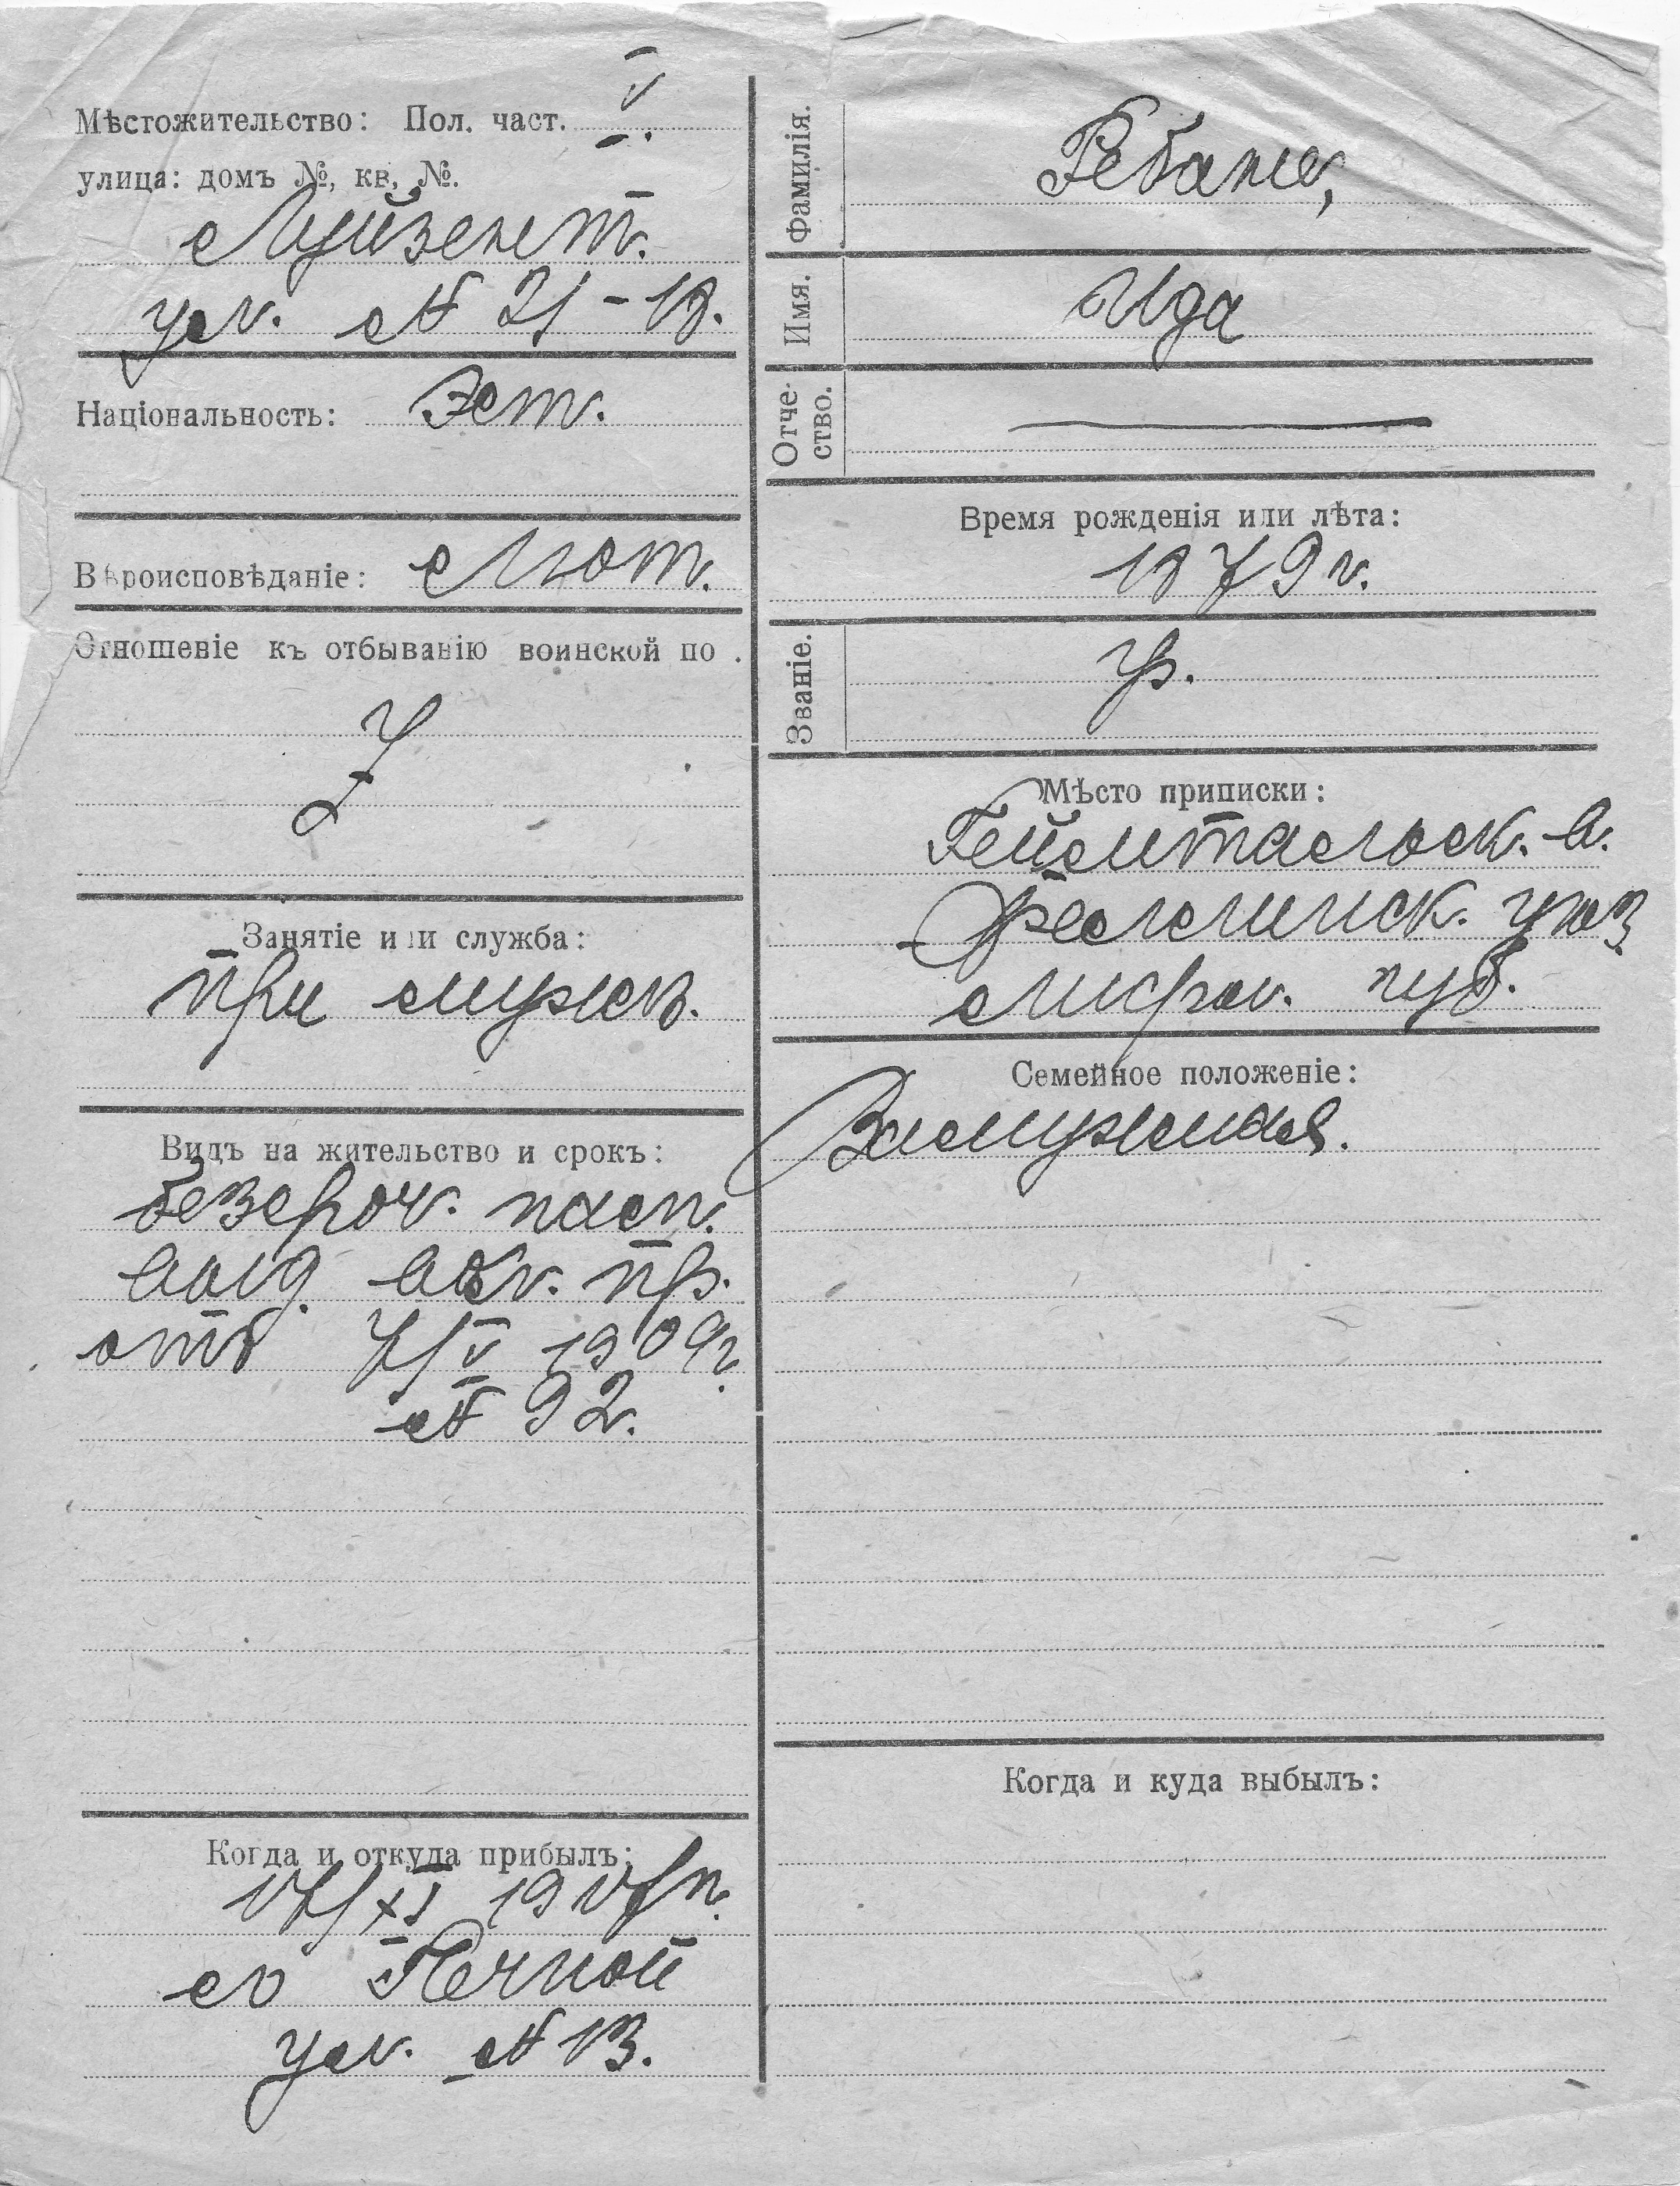 Мѣстожительство: Пол. част. V.
улица: домъ №, кв. №.
Луйзент.
ул. № 21-18.
Національность: Эст.
Вѣроисповѣданіе: Лют.
Отношеніе къ отбыванію воинской по .
Занятіе или служба:
при мужѣ.
Видъ на жительство и срокъ:
безсроч. пасп.
выд. вол. пр.
отъ 7/V 1909г.
№ 92.
Когда и откуда прибылъ:
17/XI 1917г.
съ Речной
ул. № 13.
Фамилія. Ребане,
Имя. Ида
Отче-
ство.
Время рожденія или лѣта:
1879 г.
Званіе. кр.
Мѣсто приписки:
Геймтальск. в.
Феллинск. уѣз
Лифл. губ.
Семейное положеніе:
Замужная.
Когда и куда выбылъ: